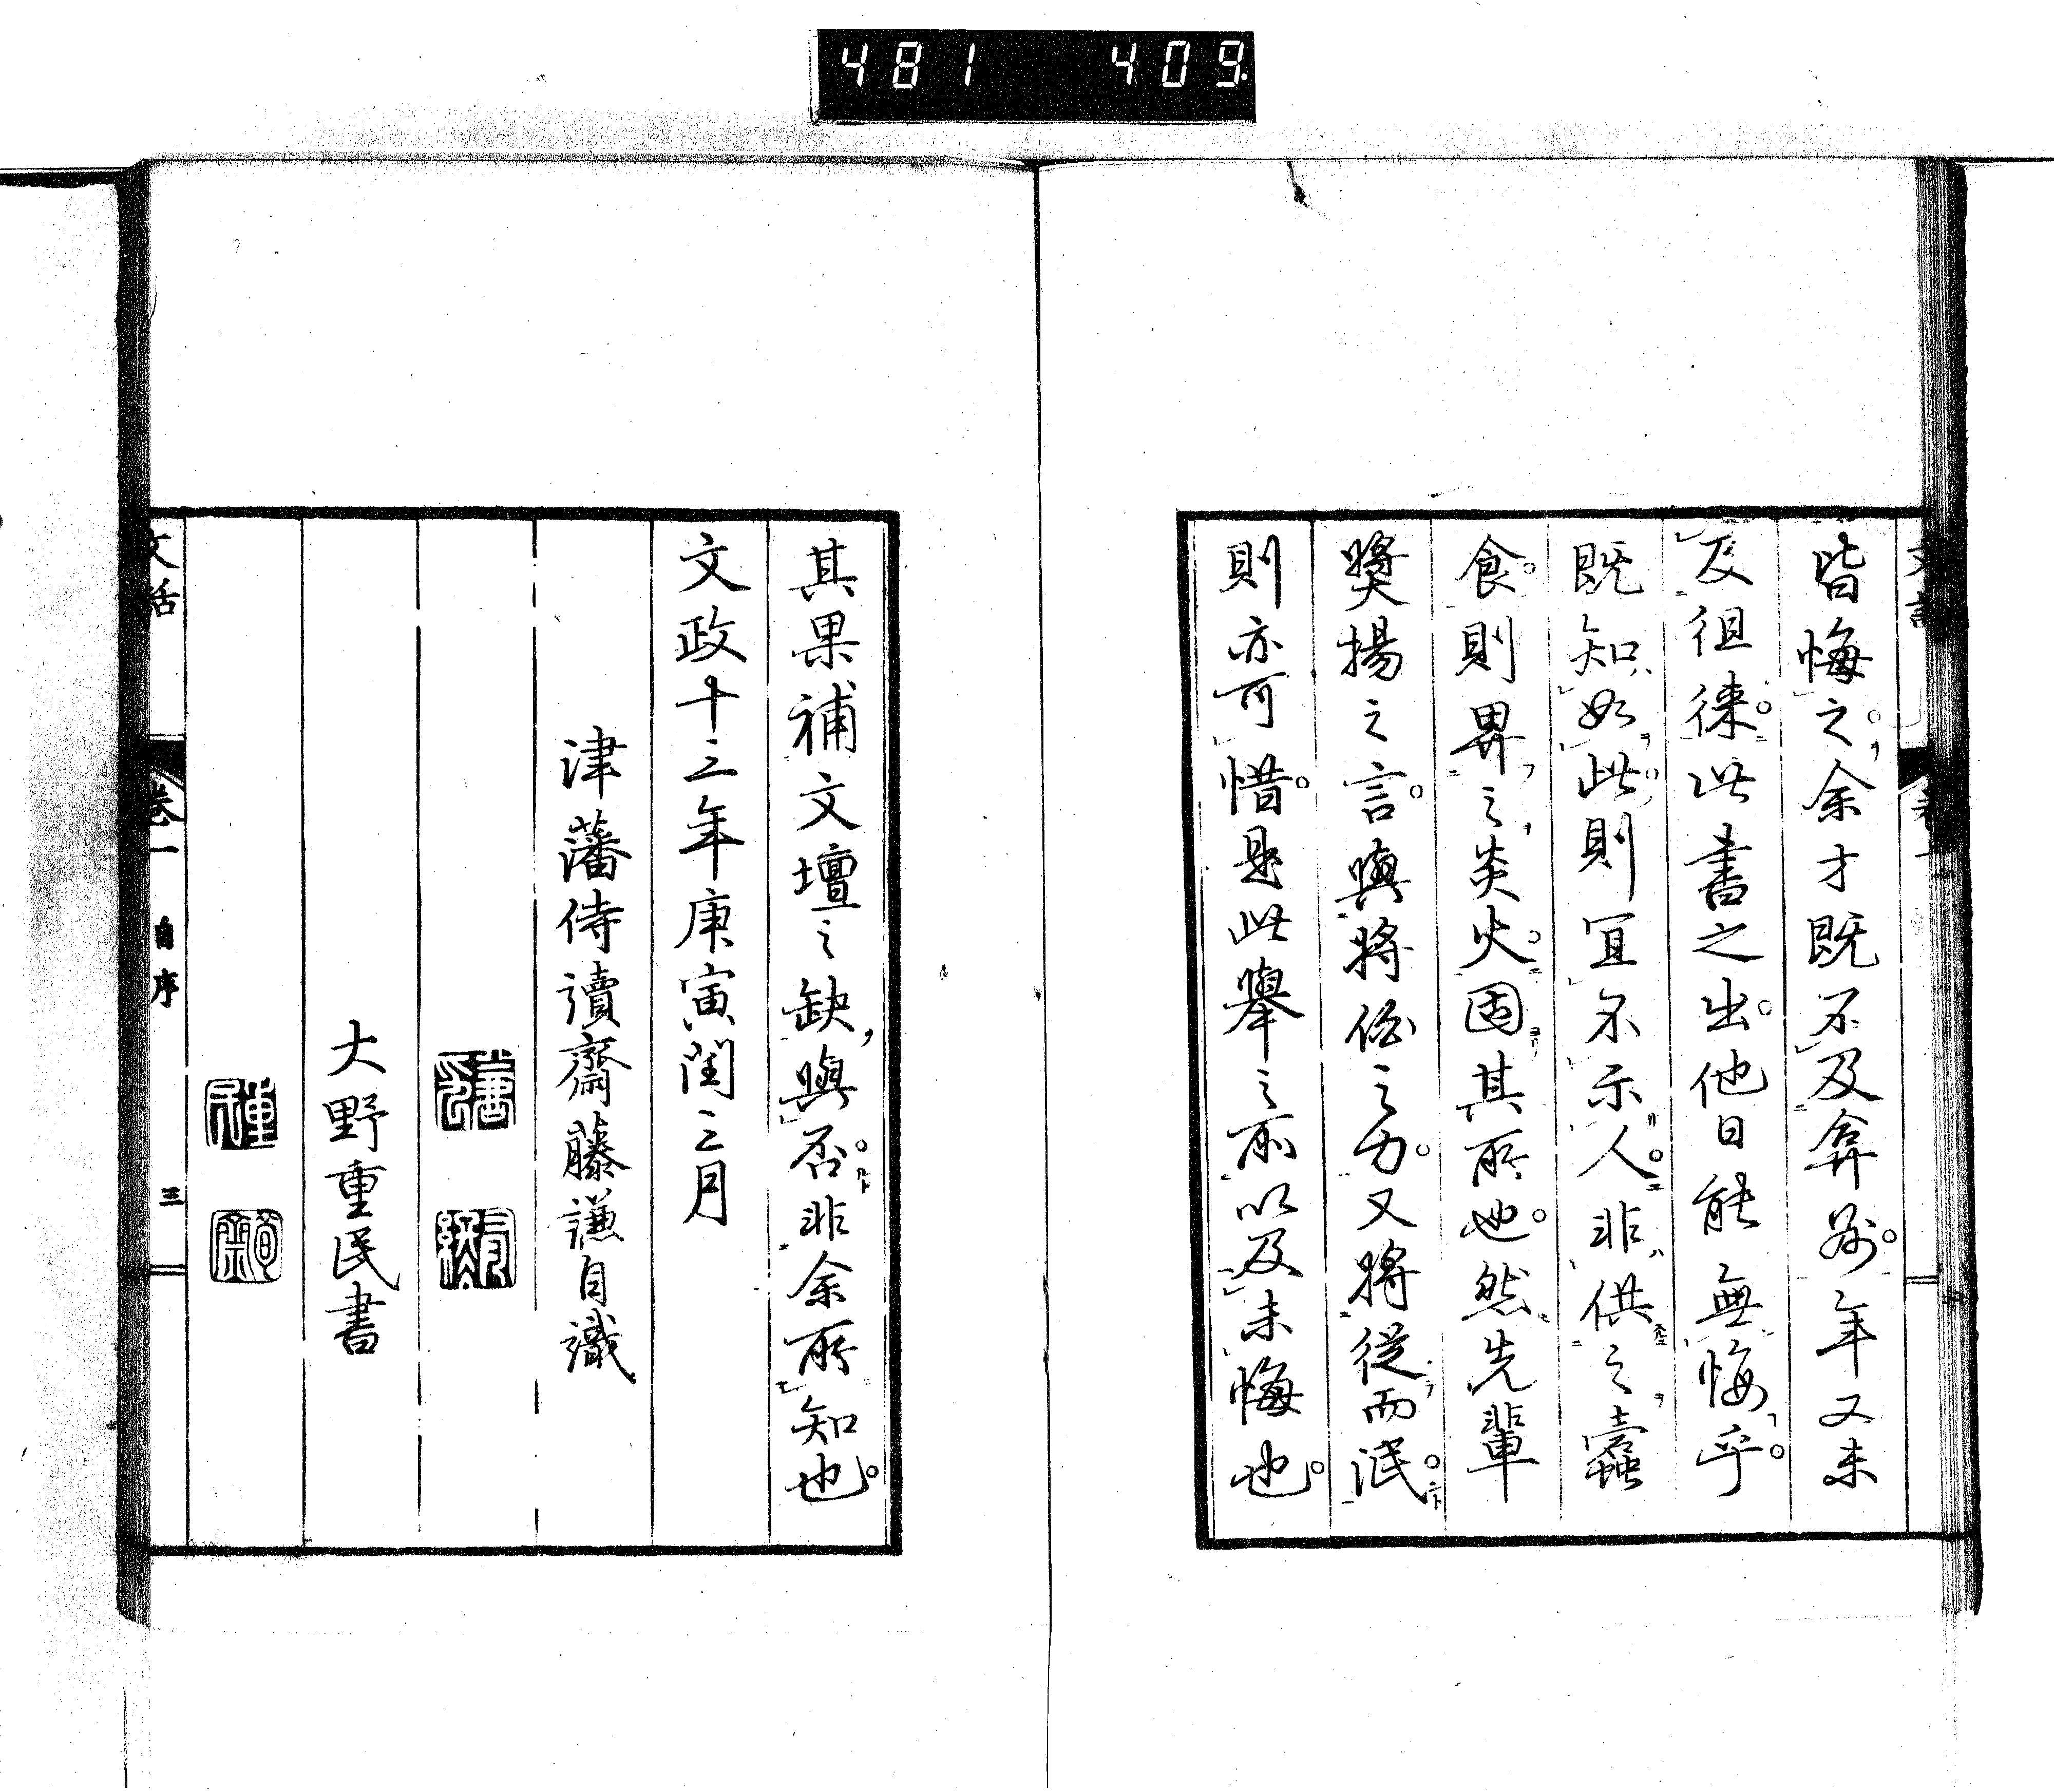 481 409
皆悔之余才既不及弇州年又未
及徂徠此書之出他日能無悔乎
既知如此則宜不示人非供之蠹
食則畀之炎火固其所也然先輩
奬揚之言與將伯之力又將從而泯
則亦可惜是此舉之所以及未悔也
其果補文壇之缺與否非余所知也
文政十三年庚寅閏三月
津藩侍讀齋藤謙自識
大野重民書
文話 卷一 自序 三